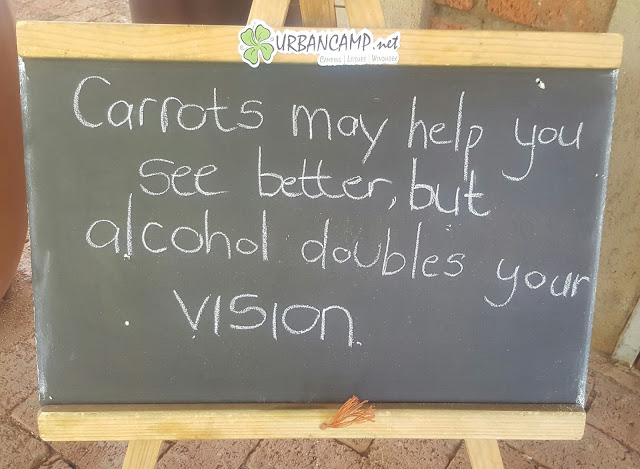 URBANCAMP.net
CAMPING | LEISURE | WINDHOEK
Carrots may help you
see better, but
alcohol doubles your
vision.